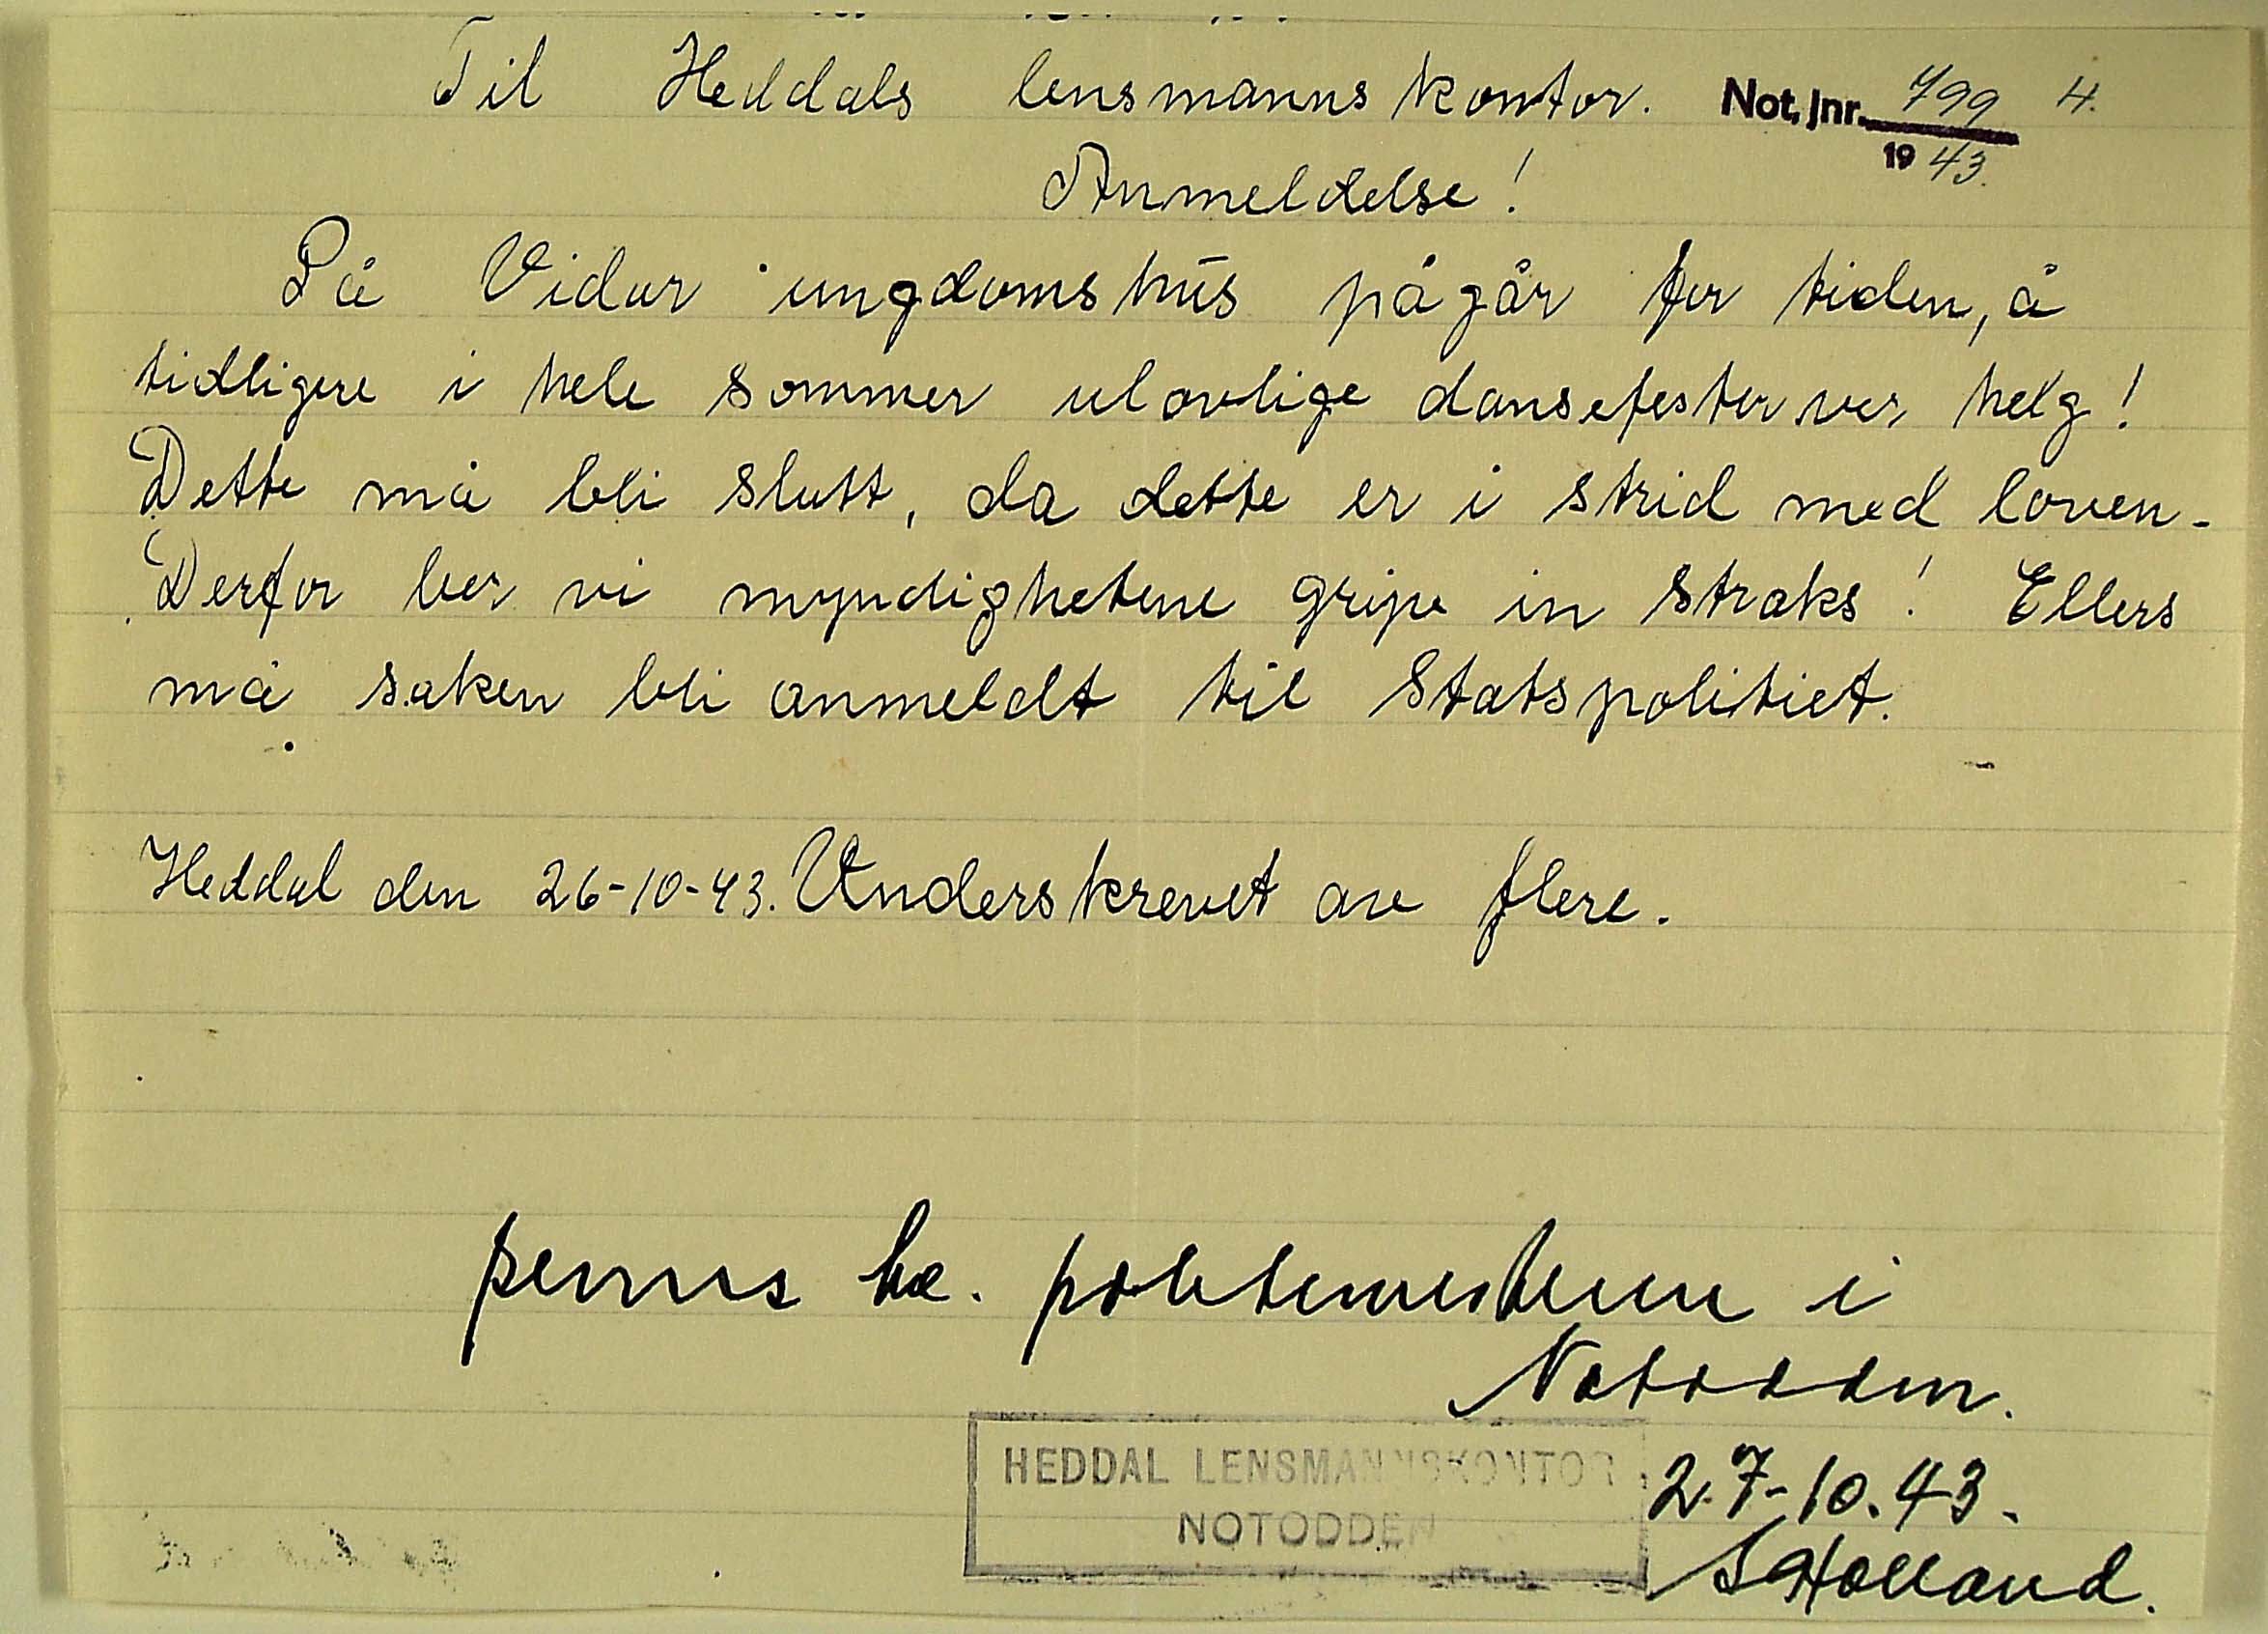 Til Heddals lensmannskontor. Not. Jnr. 799 H.
1943.
Anmeldelse!
På Vidar ungdomshus pågår for tiden, å
tidligere i hele sommer ulovlige dansefester ver helg!
Dette må bli slutt, da dette er i strid med loven-
Derfor ber vi myndighetene gripe in straks! Ellers
må saken bli anmeldt til Statspolitiet.
Heddal den 26-10-43. Underskrevet av flere.
politimesteren i
Notodden.
HEDDAL LENSMANNSKONTOR, 27-10.43.
NOTODDEN
Holland.